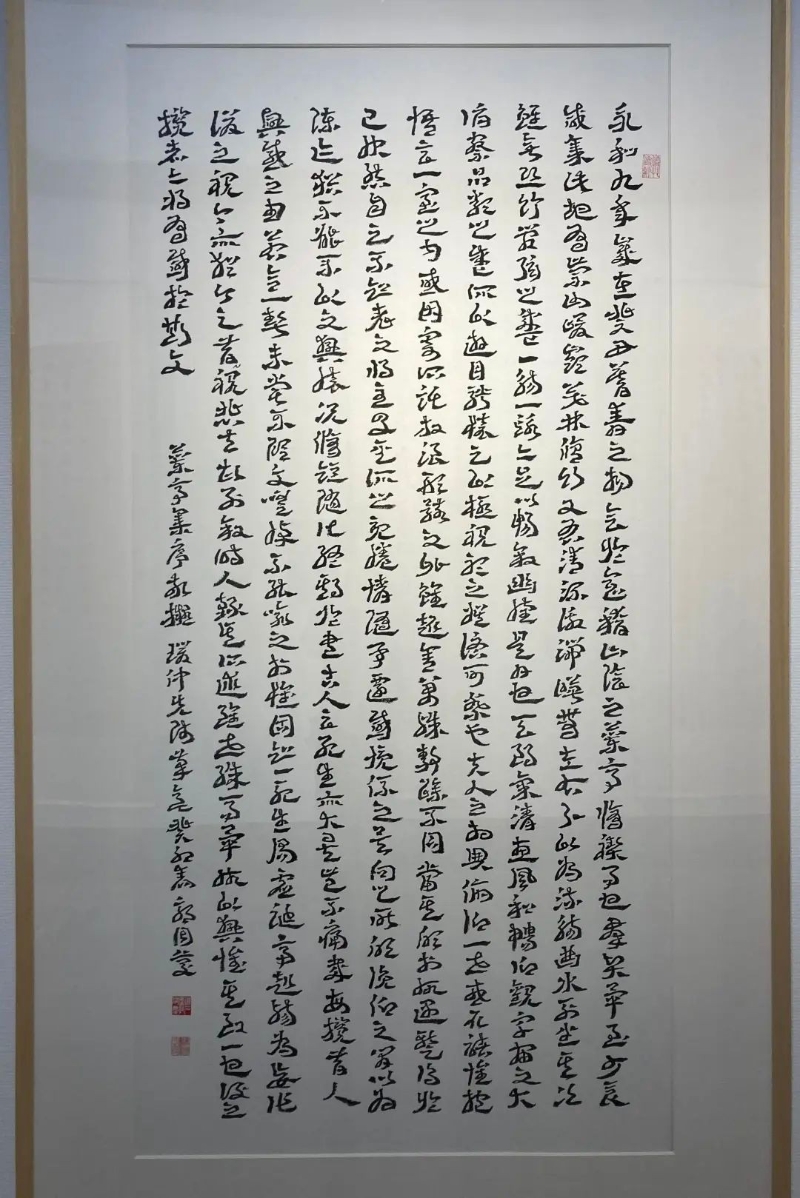 永和九年歲在癸丑暮春之初會於會稽山陰之蘭亭脩禊事也群賢畢至少長
咸集此地有崇山峻嶺茂林脩竹又有清流激湍暎帶左右引以為流觴曲水列坐其次
雖無絲竹管弦之盛一觴一詠亦足以暢敘幽情是日也天朗氣清惠風和暢仰觀宇宙之大
俯察品類之盛所以遊目騁懷足以極視聽之娛信可樂也夫人之相與俯仰一世或取諸懷抱
悟言一室之內或因寄所託放浪形骸之外雖趣舍萬殊靜躁不同當其欣於所遇蹔得於
己怏然自足不知老之將至及其所之既惓情隨事遷感慨係之矣向之所欣俛仰之間以為
陳迹猶不能不以之興懷況脩短隨化終期於盡古人云死生亦大矣豈不痛哉每攬昔人
興感之由若合一契未嘗不臨文嗟悼不能喻之於懷固知一死生為虛誕齊彭殤為妄作
後之視今亦猶今之昔視悲夫故列敘時人錄其所述雖世殊事異所以興懷其致一也後之
攬者亦將有感於斯文
蘭亭集序敬撫瑗仲先師草意癸卯春郭同慶